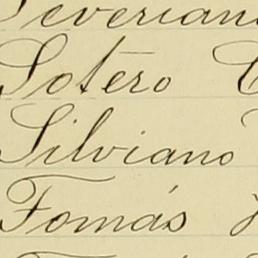 Severiano
Sotero
Silviano
Tomás